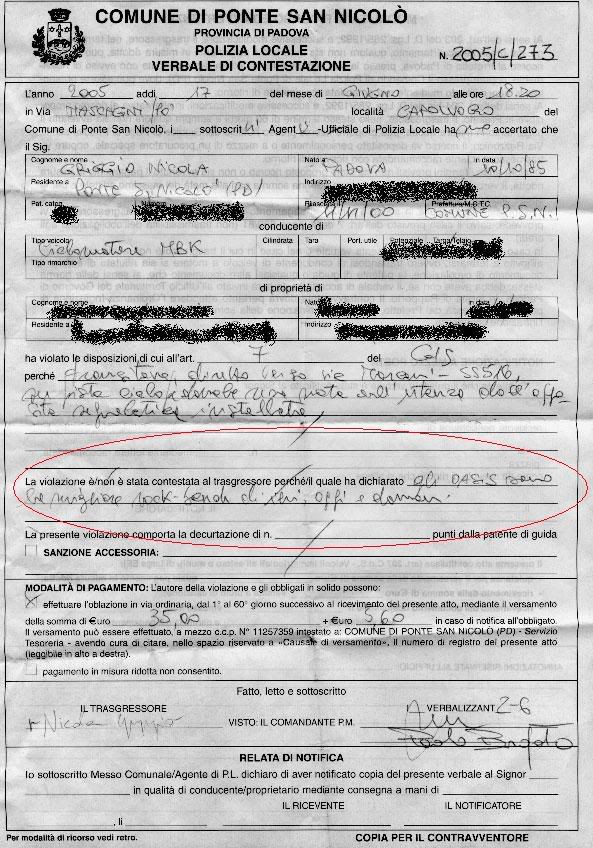 COMUNE DI PONTE SAN NICOLÒ
PROVINCIA DI PADOVA
POLIZIA LOCALE
VERBALE DI CONTESTAZIONE
N. 2005/C/273
L'anno 2005 addì, 17 del mese di GIUGNO alle ore 18.20
in Via MASCAGNI/PO località CAPOLUOGO del
Comune di Ponte San Nicolò, i sottoscritti Agenti-Ufficiale di Polizia Locale ha accertato che
il Sig.
Cognome e nome GRIGGIO NICOLA Nato a PADOVA in data /85
Residente a PONTE S. NICOLÒ (PD) Indirizzo
Pat. categ. Numero Rilasciata 11/11/00 Prefettura/M.C.T.C. COMUNE P.S.N.
conducente di
Tipo veicolo Ciclomotore MBK Cilindrata Tara Port. utile Potenziale Targa/Telaio
Tipo rimorchio
di proprietà di
Cognome e nome Nato in data
Residente a Indirizzo
ha violato le disposizioni di cui all'art. 7 del CdS
perché transitava, diretto verso via Marconi - SS516,
su pista ciclopedonale non nota all'utenza
segnaletica installata
La violazione è/non è stata contestata al trasgressore perché/il quale ha dichiarato gli OASIS sono
la migliore rock-band di ieri, oggi e domani.
La presente violazione comporta la decurtazione di n. punti dalla patente di guida
SANZIONE ACCESSORIA:
MODALITÀ DI PAGAMENTO: L'autore della violazione e gli obbligati in solido possono:
effettuare l'oblazione in via ordinaria, dal 1° al 60° giorno successivo al ricevimento del presente atto, mediante il versamento
della somma di €uro 35,00 + €uro 5,60 in caso di notifica all'obbligato.
Il versamento può essere effettuato, a mezzo c.c.p. N° 11257359 intestato a: COMUNE DI PONTE SAN NICOLÒ (PD) - Servizio
Tesoreria - avendo cura di citare, nello spazio riservato a «Causale di versamento», il numero di registro del presente atto
(leggibile in alto a destra).
pagamento in misura ridotta non consentito.
Fatto, letto e sottoscritto
IL TRASGRESSORE VERBALIZZANTI 2-6
Nicola Griggio VISTO: IL COMANDANTE P.M.
RELATA DI NOTIFICA
Io sottoscritto Messo Comunale/Agente di P.L. dichiaro di aver notificato copia del presente verbale al Signor
in qualità di conducente/proprietario mediante consegna a mani di
IL RICEVENTE IL NOTIFICATORE
, lì
Per modalità di ricorso vedi retro. COPIA PER IL CONTRAVVENTORE